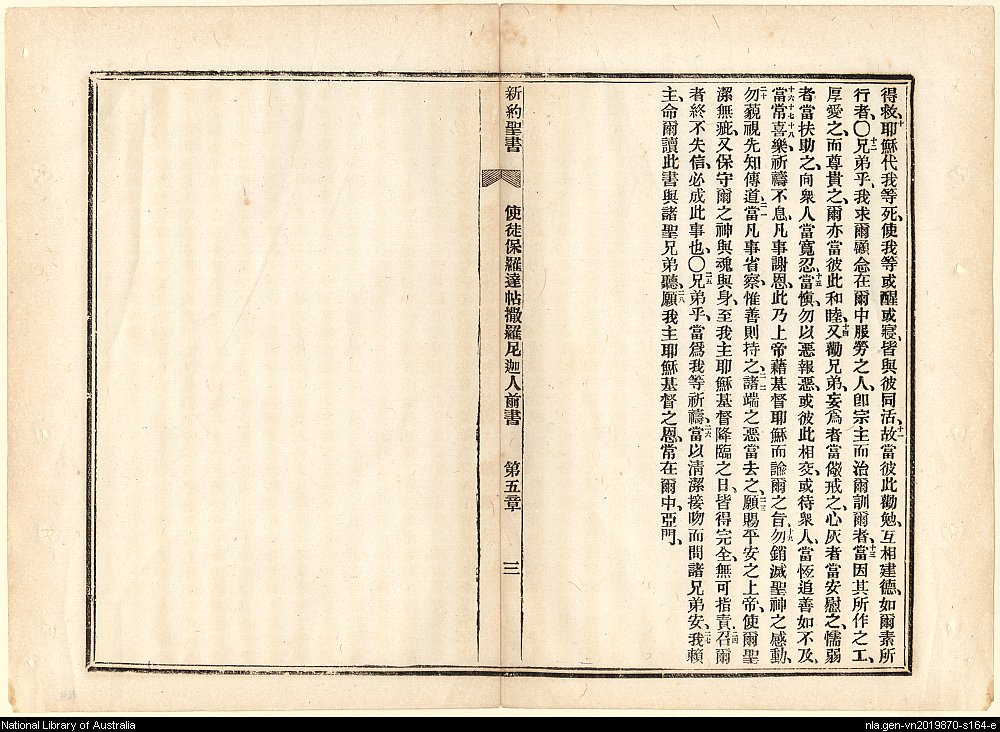 得救、十耶穌代我等死、使我等或醒或寢、皆與彼同活、十一故當彼此勸勉、互相建德、如爾素所
行者、〇十二兄弟乎、我求爾顧念在爾中服勞之人、卽宗主而治爾訓爾者、十三當因其所作之工、
厚愛之、而尊貴之、爾亦當彼此和睦、十四又勸兄弟、妄爲者當儆戒之、心灰者當安慰之、懦弱
者當扶助之、向衆人當寬忍、十五當愼、勿以惡報惡、或彼此相交、或待衆人、當恆追善如不及、
十六十七十八當常喜樂、祈禱不息、凡事謝恩、此乃上帝藉基督耶穌而諭爾之旨、十九勿銷滅聖神之感動、
二十勿藐視先知傳道、二一當凡事省察、惟善則持之、二二諸端之惡當去之、二三願賜平安之上帝、使爾聖
潔無疵、又保守爾之神與魂與身、至我主耶穌基督降臨之日、皆得完全、無可指責、二四召爾
者終不失信、必成此事也、〇二五兄弟乎、當爲我等祈禱、二六當以清潔接吻而問諸兄弟安、二七我賴
主、命爾讀此書與諸聖兄弟聽、二八願我主耶穌基督之恩、常在爾中、亞門、
新約聖書 使徒保羅達帖撒羅尼迦人前書 第五章 三
National Library of Australia
nla.gen-vn2019870-s164-e